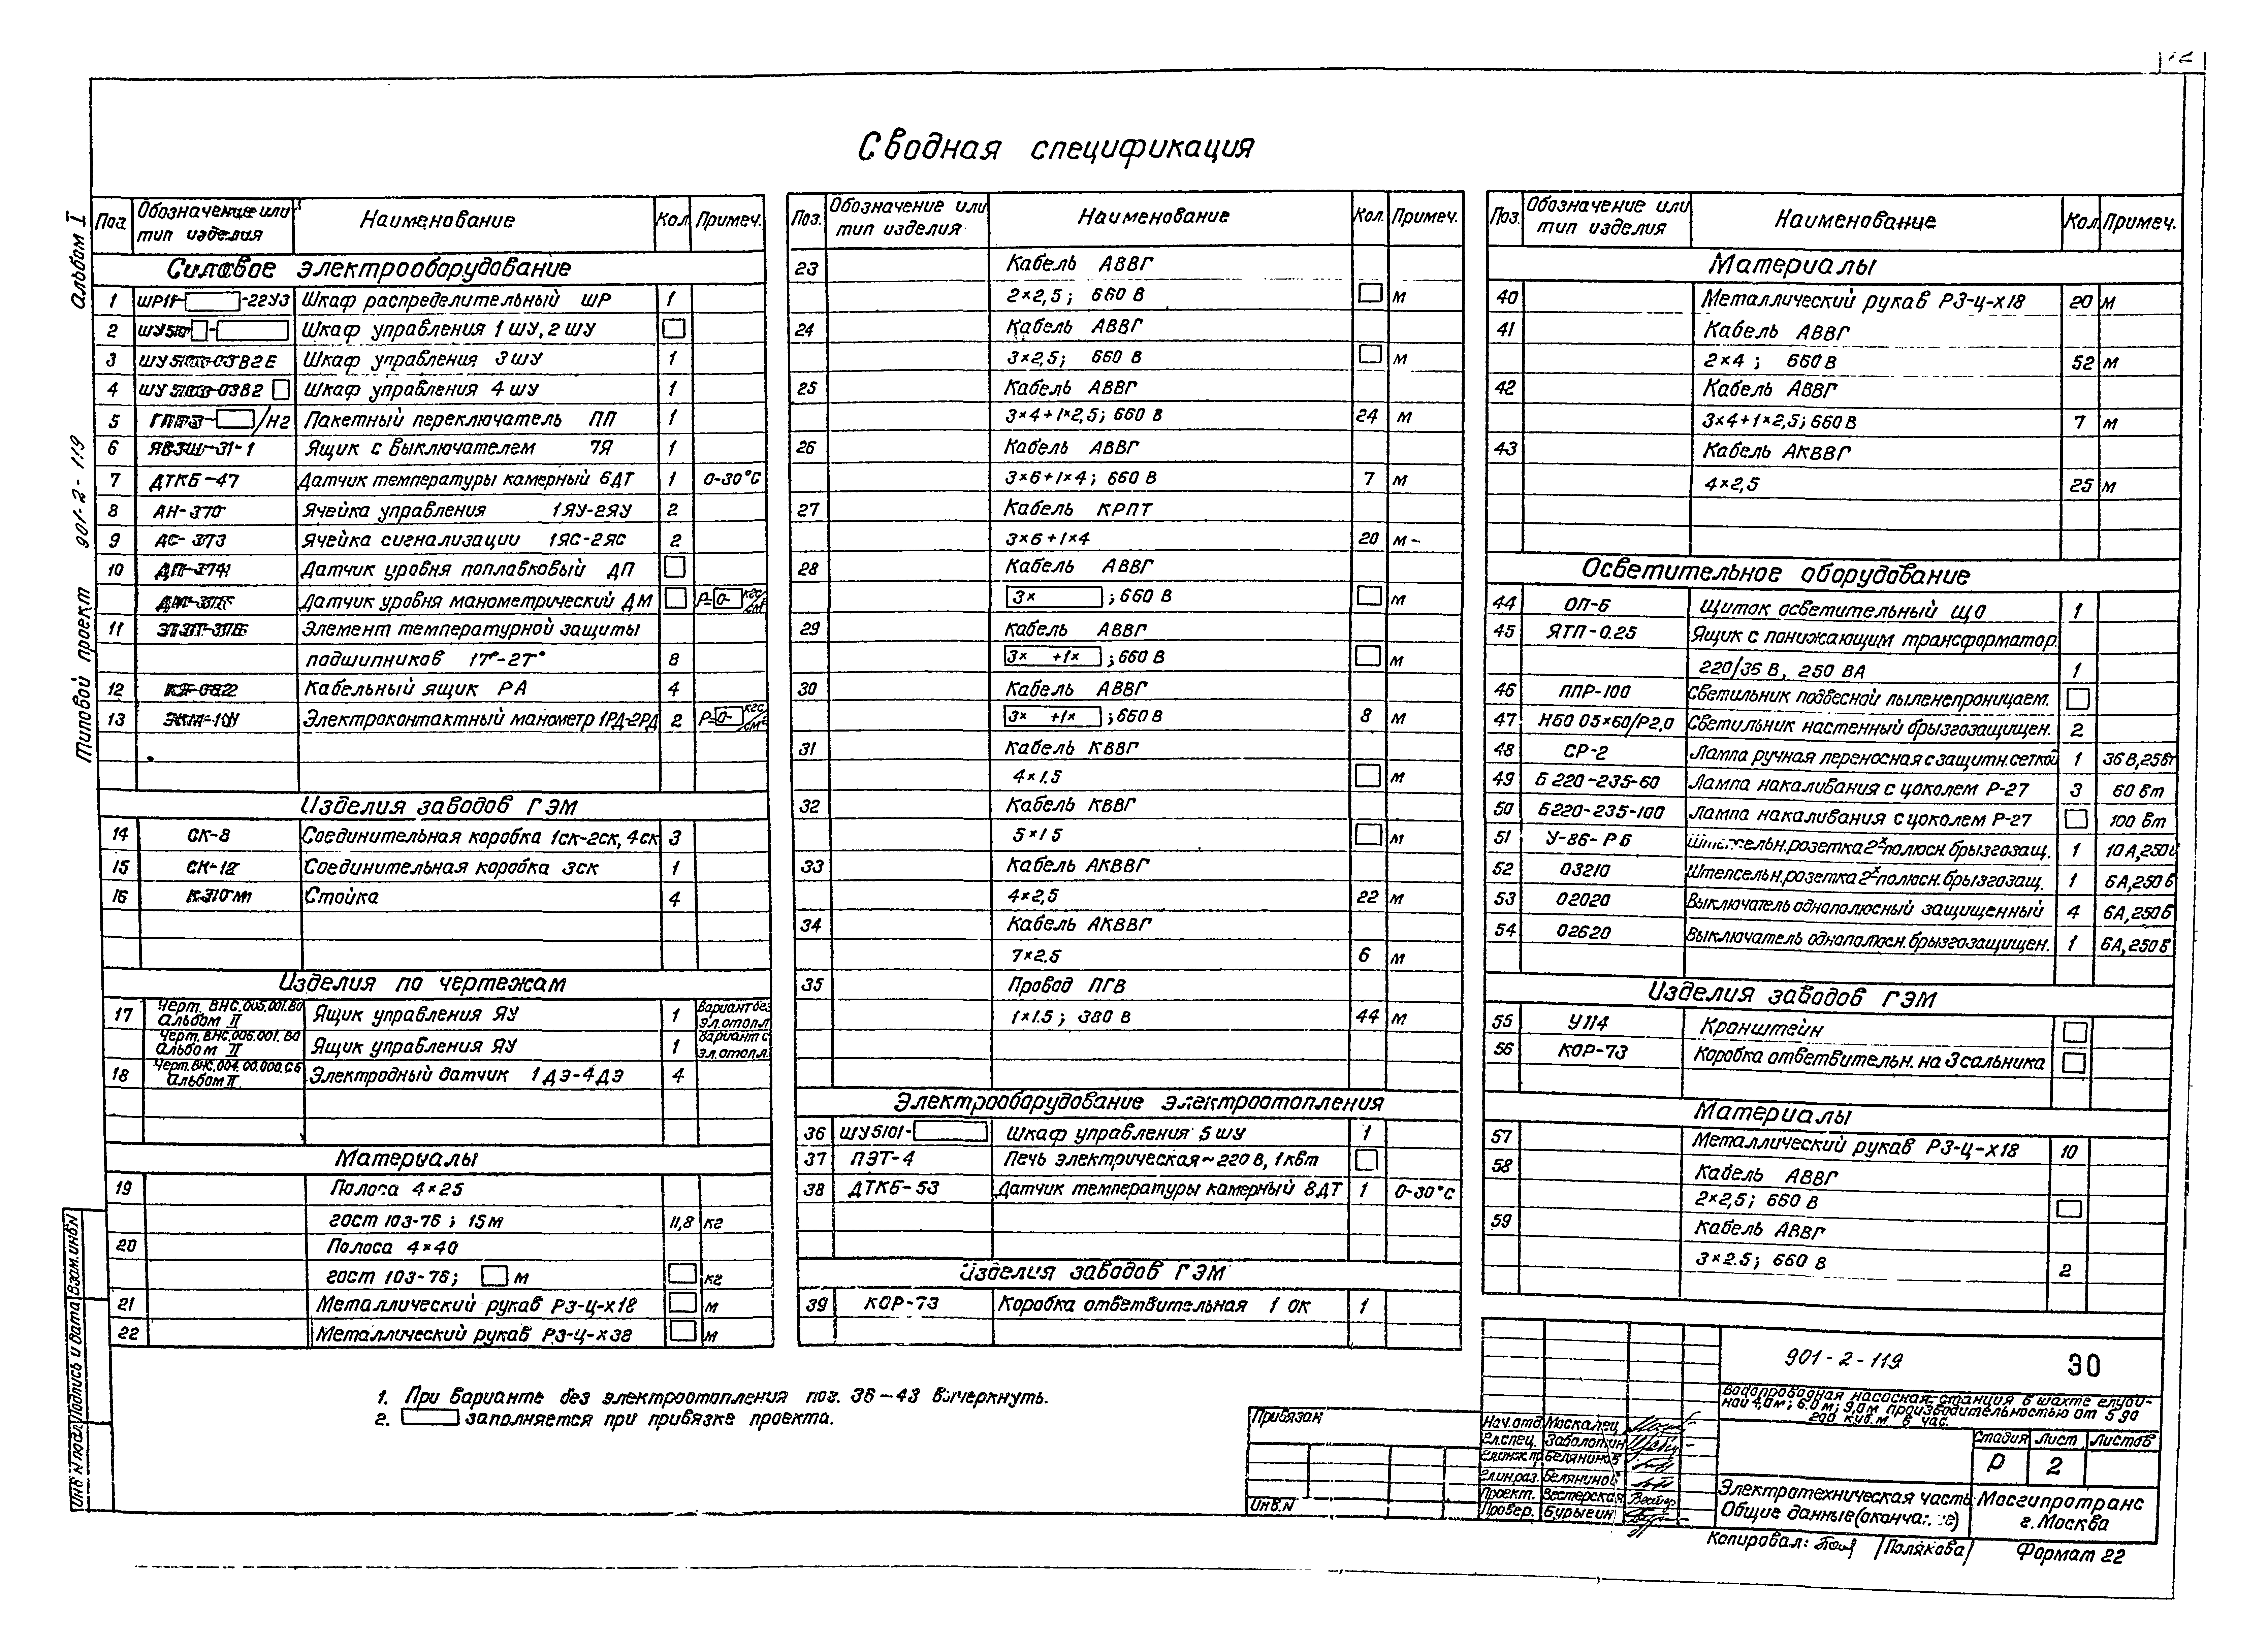 Сводная спецификация
Альбом I
Типовой проект 901-2-119
Поз. Обозначение или тип изделия Наименование Кол. Примеч.
Силовое электрооборудование
1 ШР11- -22У3 Шкаф распределительный ШР 1
2 Шкаф управления 1 ШУ, 2 ШУ
3 Шкаф управления 3 ШУ 1
4 Шкаф управления 4 ШУ 1
5 /Н2 Пакетный переключатель ПП 1
6 ЯВЗШ-31-1 Ящик с выключателем 7Я 1
7 ДТКБ-47 Датчик температуры камерный 6ДТ 1 0-30°С
8 АН-370 Ячейка управления 1ЯУ-2ЯУ 2
9 АС-373 Ячейка сигнализации 1ЯС-2ЯС 2
10 Датчик уровня поплавковый ДП
Датчик уровня манометрический ДМ Р=0- кгс/см²
11 Элемент температурной защиты
подшипников 1Т°-2Т° 8
12 Кабельный ящик РА 4
13 ЭКМ-1У Электроконтактный манометр 1РД-2РД 2 Р=0- кгс/см²
Изделия заводов ГЭМ
14 СК-8 Соединительная коробка 1СК-2СК, 4СК 3
15 СК-12 Соединительная коробка 3СК 1
16 Стойка 4
Изделия по чертежам
17 Черт. ВНС.005.001.В0 Альбом II Ящик управления ЯУ 1 Вариант без эл.отопл.
Черт. ВНС.006.001.В0 Альбом II Ящик управления ЯУ 1 Вариант с эл.отопл.
18 Черт.ВНС.004.00.000.Сб Альбом II Электродный датчик 1ДЭ-4ДЭ 4
Материалы
19 Полоса 4×25
гост 103-76; 15м 11,8 кг
20 Полоса 4×40
гост 103-76; м кг
21 Металлический рукав РЗ-Ц-Х18 м
22 Металлический рукав РЗ-Ц-Х38 м
Поз. Обозначение или тип изделия Наименование Кол. Примеч.
23 Кабель АВВГ
2×2,5; 660 В м
24 Кабель АВВГ
3×2,5; 660 В м
25 Кабель АВВГ
3×4+1×2,5; 660 В 24 м
26 Кабель АВВГ
3×6+1×4; 660 В 7 м
27 Кабель КРПТ
3×6+1×4 20 м
28 Кабель АВВГ
3× ; 660 В м
29 Кабель АВВГ
3× +1× ; 660 В м
30 Кабель АВВГ
3× +1× ; 660 В 8 м
31 Кабель КВВГ
4×1.5 м
32 Кабель КВВГ
5×1.5 м
33 Кабель АКВВГ
4×2,5 22 м
34 Кабель АКВВГ
7×2.5 6 м
35 Провод ПГВ
1×1.5; 380 В 44 м
Электрооборудование электроотопления
36 ШУ5101- Шкаф управления 5 ШУ 1
37 ПЭТ-4 Печь электрическая ~ 220 В, 1 кВт
38 ДТКБ-53 Датчик температуры камерный 8ДТ 1 0-30°С
Изделия заводов ГЭМ
39 КОР-73 Коробка ответвительная 1 ОК 1
Поз. Обозначение или тип изделия Наименование Кол. Примеч.
Материалы
40 Металлический рукав РЗ-Ц-Х18 20 м
41 Кабель АВВГ
2×4; 660 В 52 м
42 Кабель АВВГ
3×4+1×2,5; 660 В 7 м
43 Кабель АКВВГ
4×2,5 25 м
Осветительное оборудование
44 ОП-6 Щиток осветительный ЩО 1
45 ЯТП-0.25 Ящик с понижающим трансформатор.
220/36 В, 250 ВА 1
46 ППР-100 Светильник подвесной пыленепроницаем.
47 НБО 05×60/Р2,0 Светильник настенный брызгозащищен. 2
48 СР-2 Лампа ручная переносная с защитн.сеткой 1 36 В, 25 Вт
49 Б 220-235-60 Лампа накаливания с цоколем Р-27 3 60 Вт
50 Б220-235-100 Лампа накаливания с цоколем Р-27 100 Вт
51 У-86-РБ Штепсельн.розетка 2х полюсн.брызгозащ. 1 10 А, 250 В
52 03210 Штепсельн.розетка 2х полюсн.брызгозащ. 1 6А, 250 В
53 02020 Выключатель однополюсный защищенный 4 6А, 250 В
54 02620 Выключатель однополюсн.брызгозащищен. 1 6А, 250 В
Изделия заводов ГЭМ
55 У114 Кронштейн
56 КОР-73 Коробка ответвительн. на 3 сальника
Материалы
57 Металлический рукав РЗ-Ц-Х18 10
58 Кабель АВВГ
2×2,5; 660 В
59 Кабель АВВГ
3×2.5; 660 В 2
1. При варианте без электроотопления поз. 36-43 вычеркнуть.
2. заполняется при привязке проекта.
Взам.инв.N
Подпись и дата
Инв.N подл.
Привязан
Инв.N
Нач.отд. Москалец
Гл.спец. Заболотин
Гл.инж.пр. Белянинов
Гл.ин.раз. Белянинов
Проект. Вестерская
Провер. Бурыгин
901-2-119 30
Водопроводная насосная станция в шахте глуби-
ной 4,0м; 6.0м; 9,0м производительностью от 5 до
200 куб.м в час.
Стадия Лист Листов
Р 2
Электротехническая часть
Общие данные (окончание)
Мосгипротранс
г.Москва
Копировал: /Полякова/ Формат 22